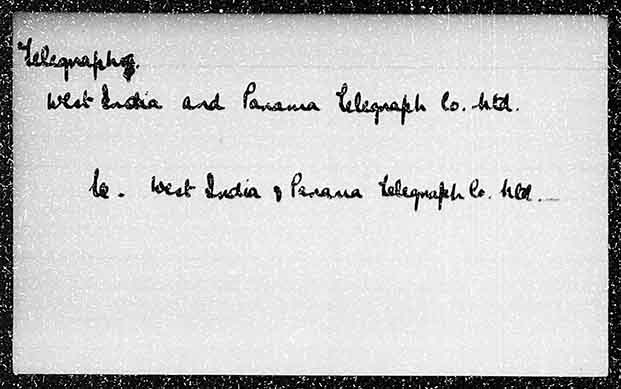 Telegraphy.
West India and Panama Telegraph Co. Ltd.
West India & Panama Telegraph Co. Ltd.